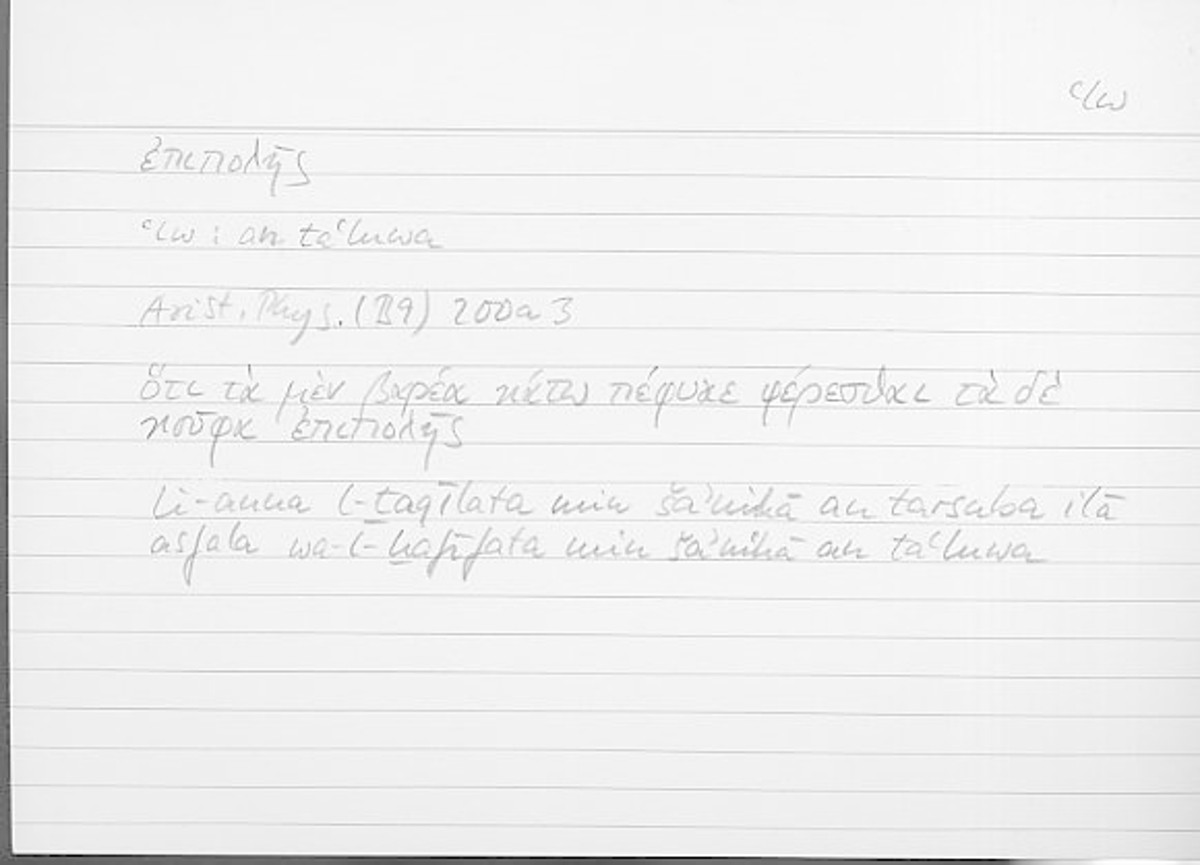 ʿlw
ἐπιπολῆς
ʿlw : an taʿluwa
Arist. Phys. (B9) 200a3
ὅτι τὰ μὲν βαρέα κάτω πέφυκε φέρεσθαι τὰ δὲ
κοῦφα ἐπιπολῆς
li-anna l-ṯaqīlata min šaʾnihā an tarsuba ilā
asfala wa-l-ḫafīfata min šaʾnihā an taʿluwa